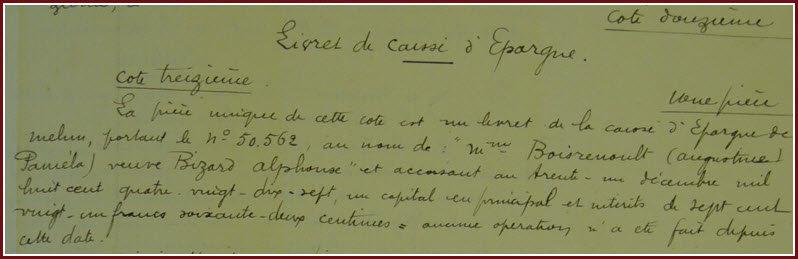 cote douzième
Livret de caisse d'Epargne.
cote treizième.
une pièce
La pièce unique de cette cote est un livret de la caisse d'Epargne de
melun, portant le N° 50.562, au nom de: "Mme Boisrenoult (augustine
Paméla) veuve Bizard alphonse" et accusant au trente-un décembre mil
huit cent quatre-vingt-dix-sept, un capital en principal et interêts de sept cent
vingt-un francs soixante-deux centimes = aucune operation n'a eté fait depuis
cette date.